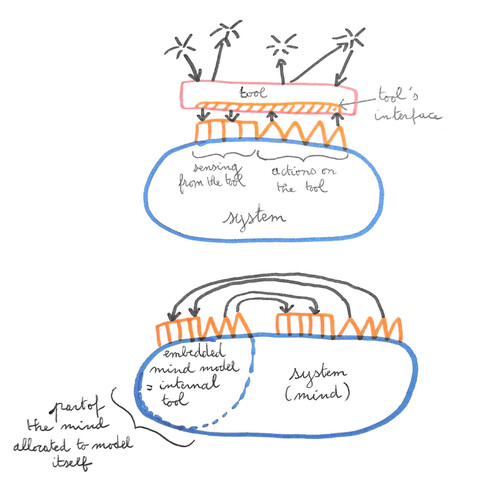 tool
tool's
interface
sensing
from the tool
actions on
the tool
system
embedded
mind model
= internal
tool
system
(mind)
part of
the mind
allocated to model
itself